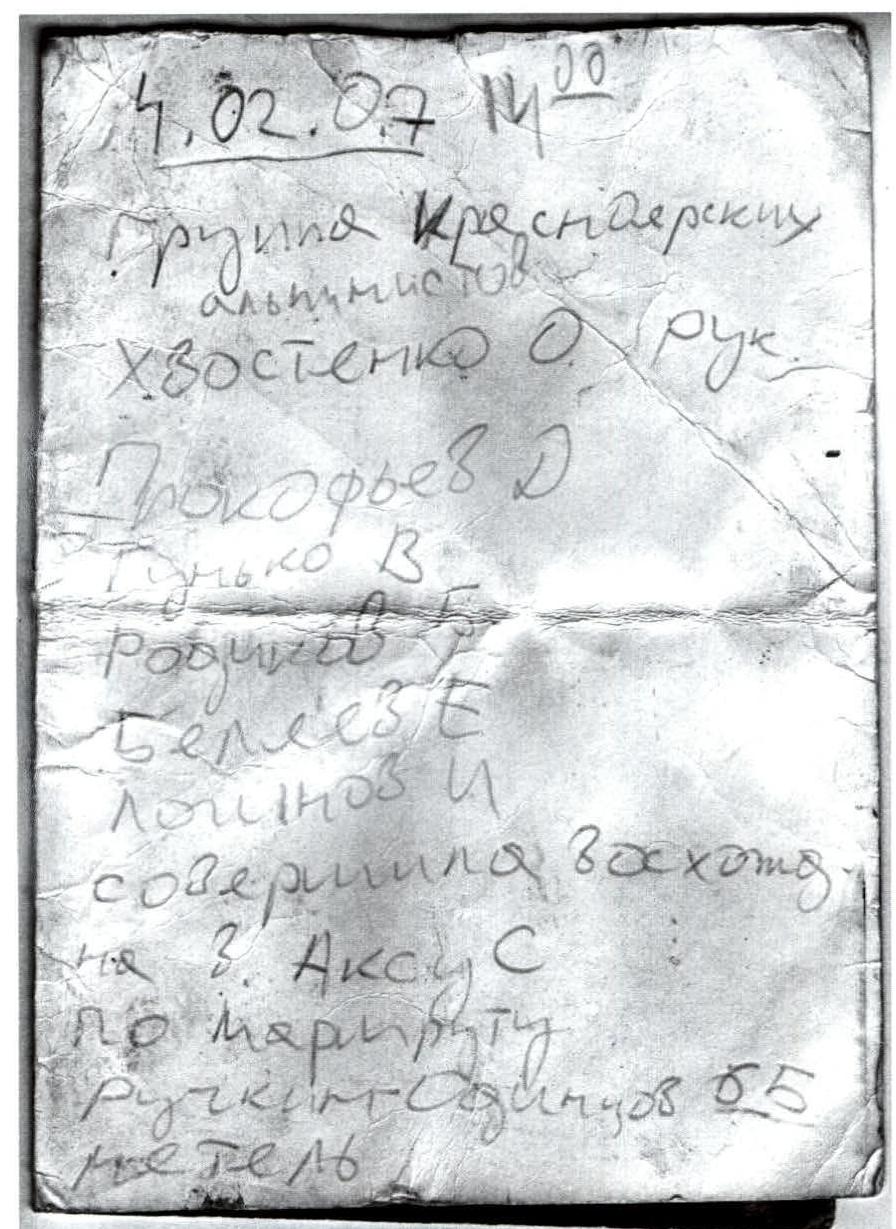 4.02.07 14⁰⁰
Группа Красноярских
альпинистов
Хвостенко О. рук.
Прокофьев Д
Гунько В
Родиков Б
Беляев Е
Логинов И
совершила восхожд.
на в. Аксу С
по маршруту
Ручкин+Одинцов 6Б
метель